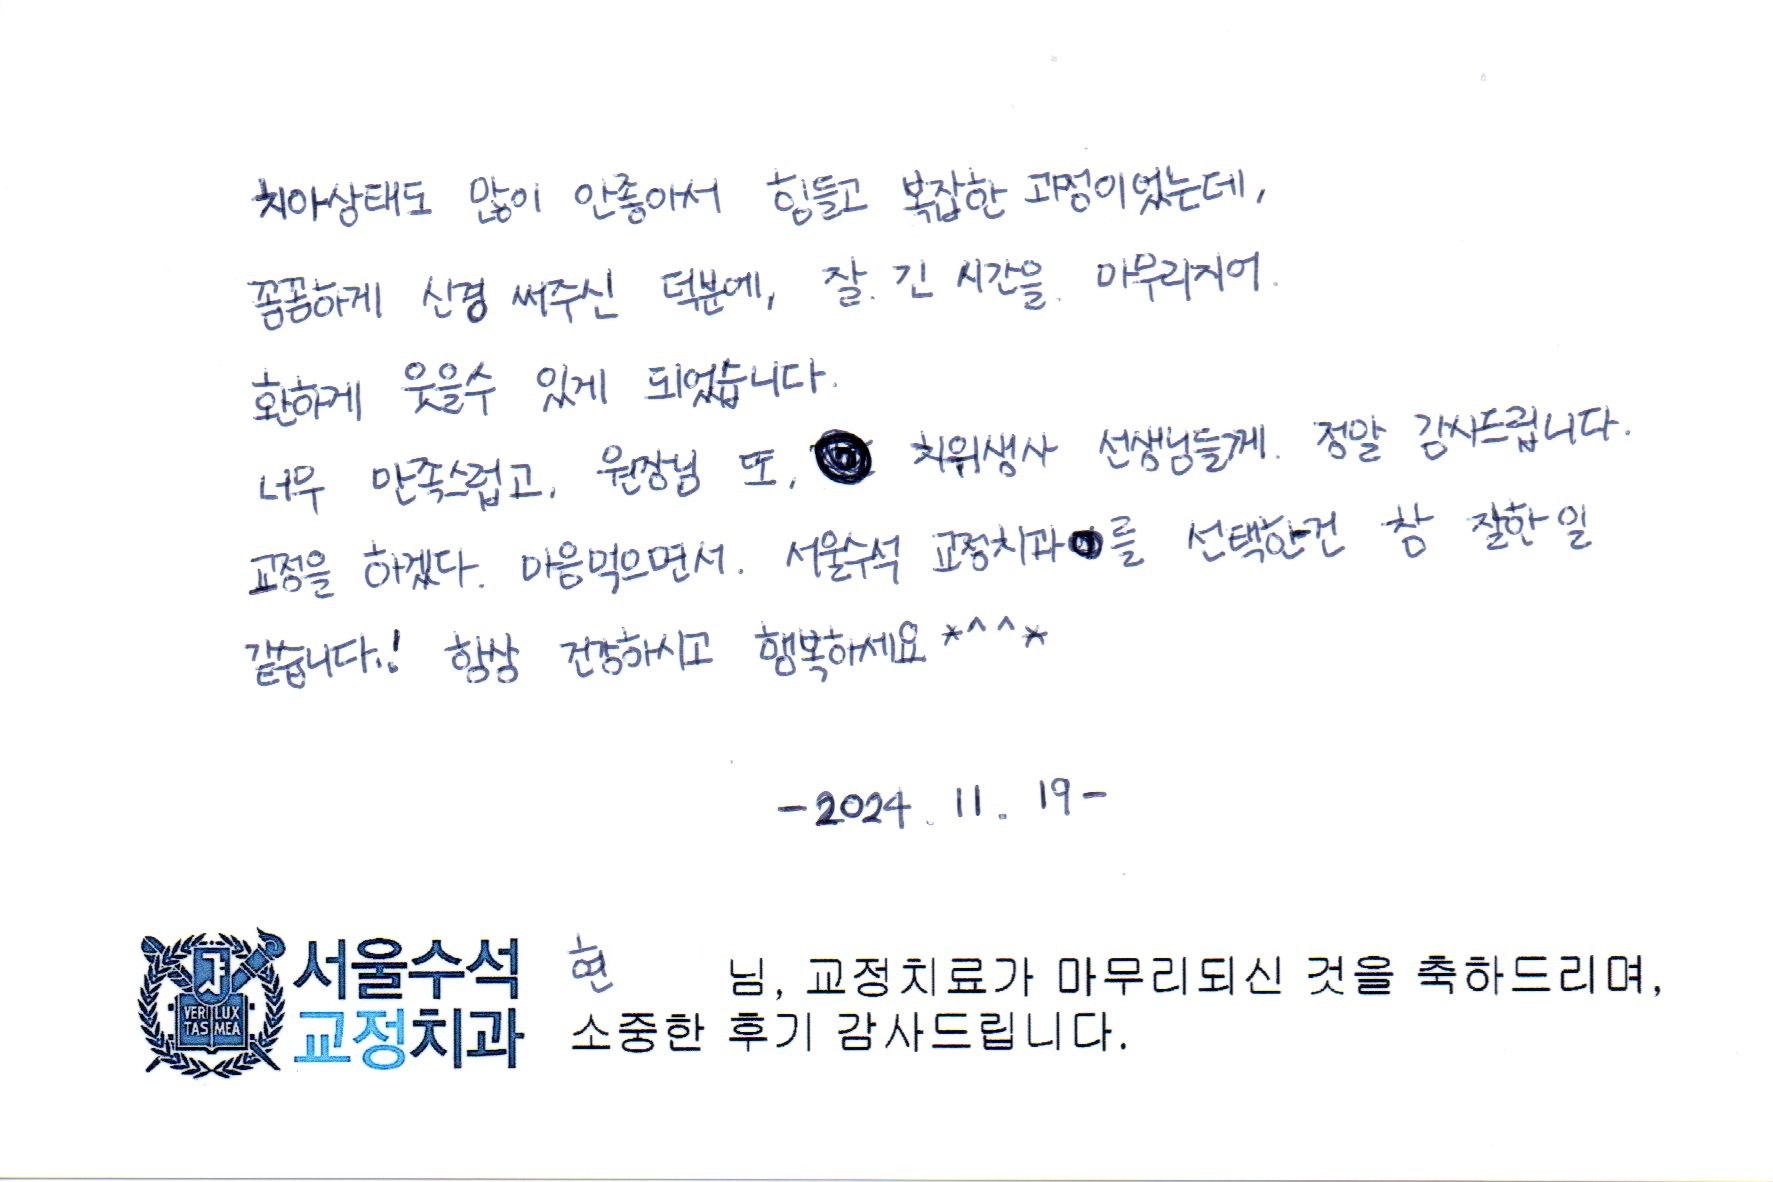 치아상태도 많이 안좋아서 힘들고 복잡한 과정이었는데,
꼼꼼하게 신경 써주신 덕분에, 잘. 긴 시간을. 마무리지어.
환하게 웃을수 있게 되었습니다.
너무 만족스럽고, 원장님 또, 치위생사 선생님들께. 정말 감사드립니다.
교정을 하겠다. 마음먹으면서. 서울수석 교정치과를 선택한건 참 잘한일
같습니다..! 항상 건강하시고 행복하세요 *^^*
-2024. 11. 19-
VERI LUX
TAS MEA
서울수석
교정치과
현 님, 교정치료가 마무리되신 것을 축하드리며,
소중한 후기 감사드립니다.